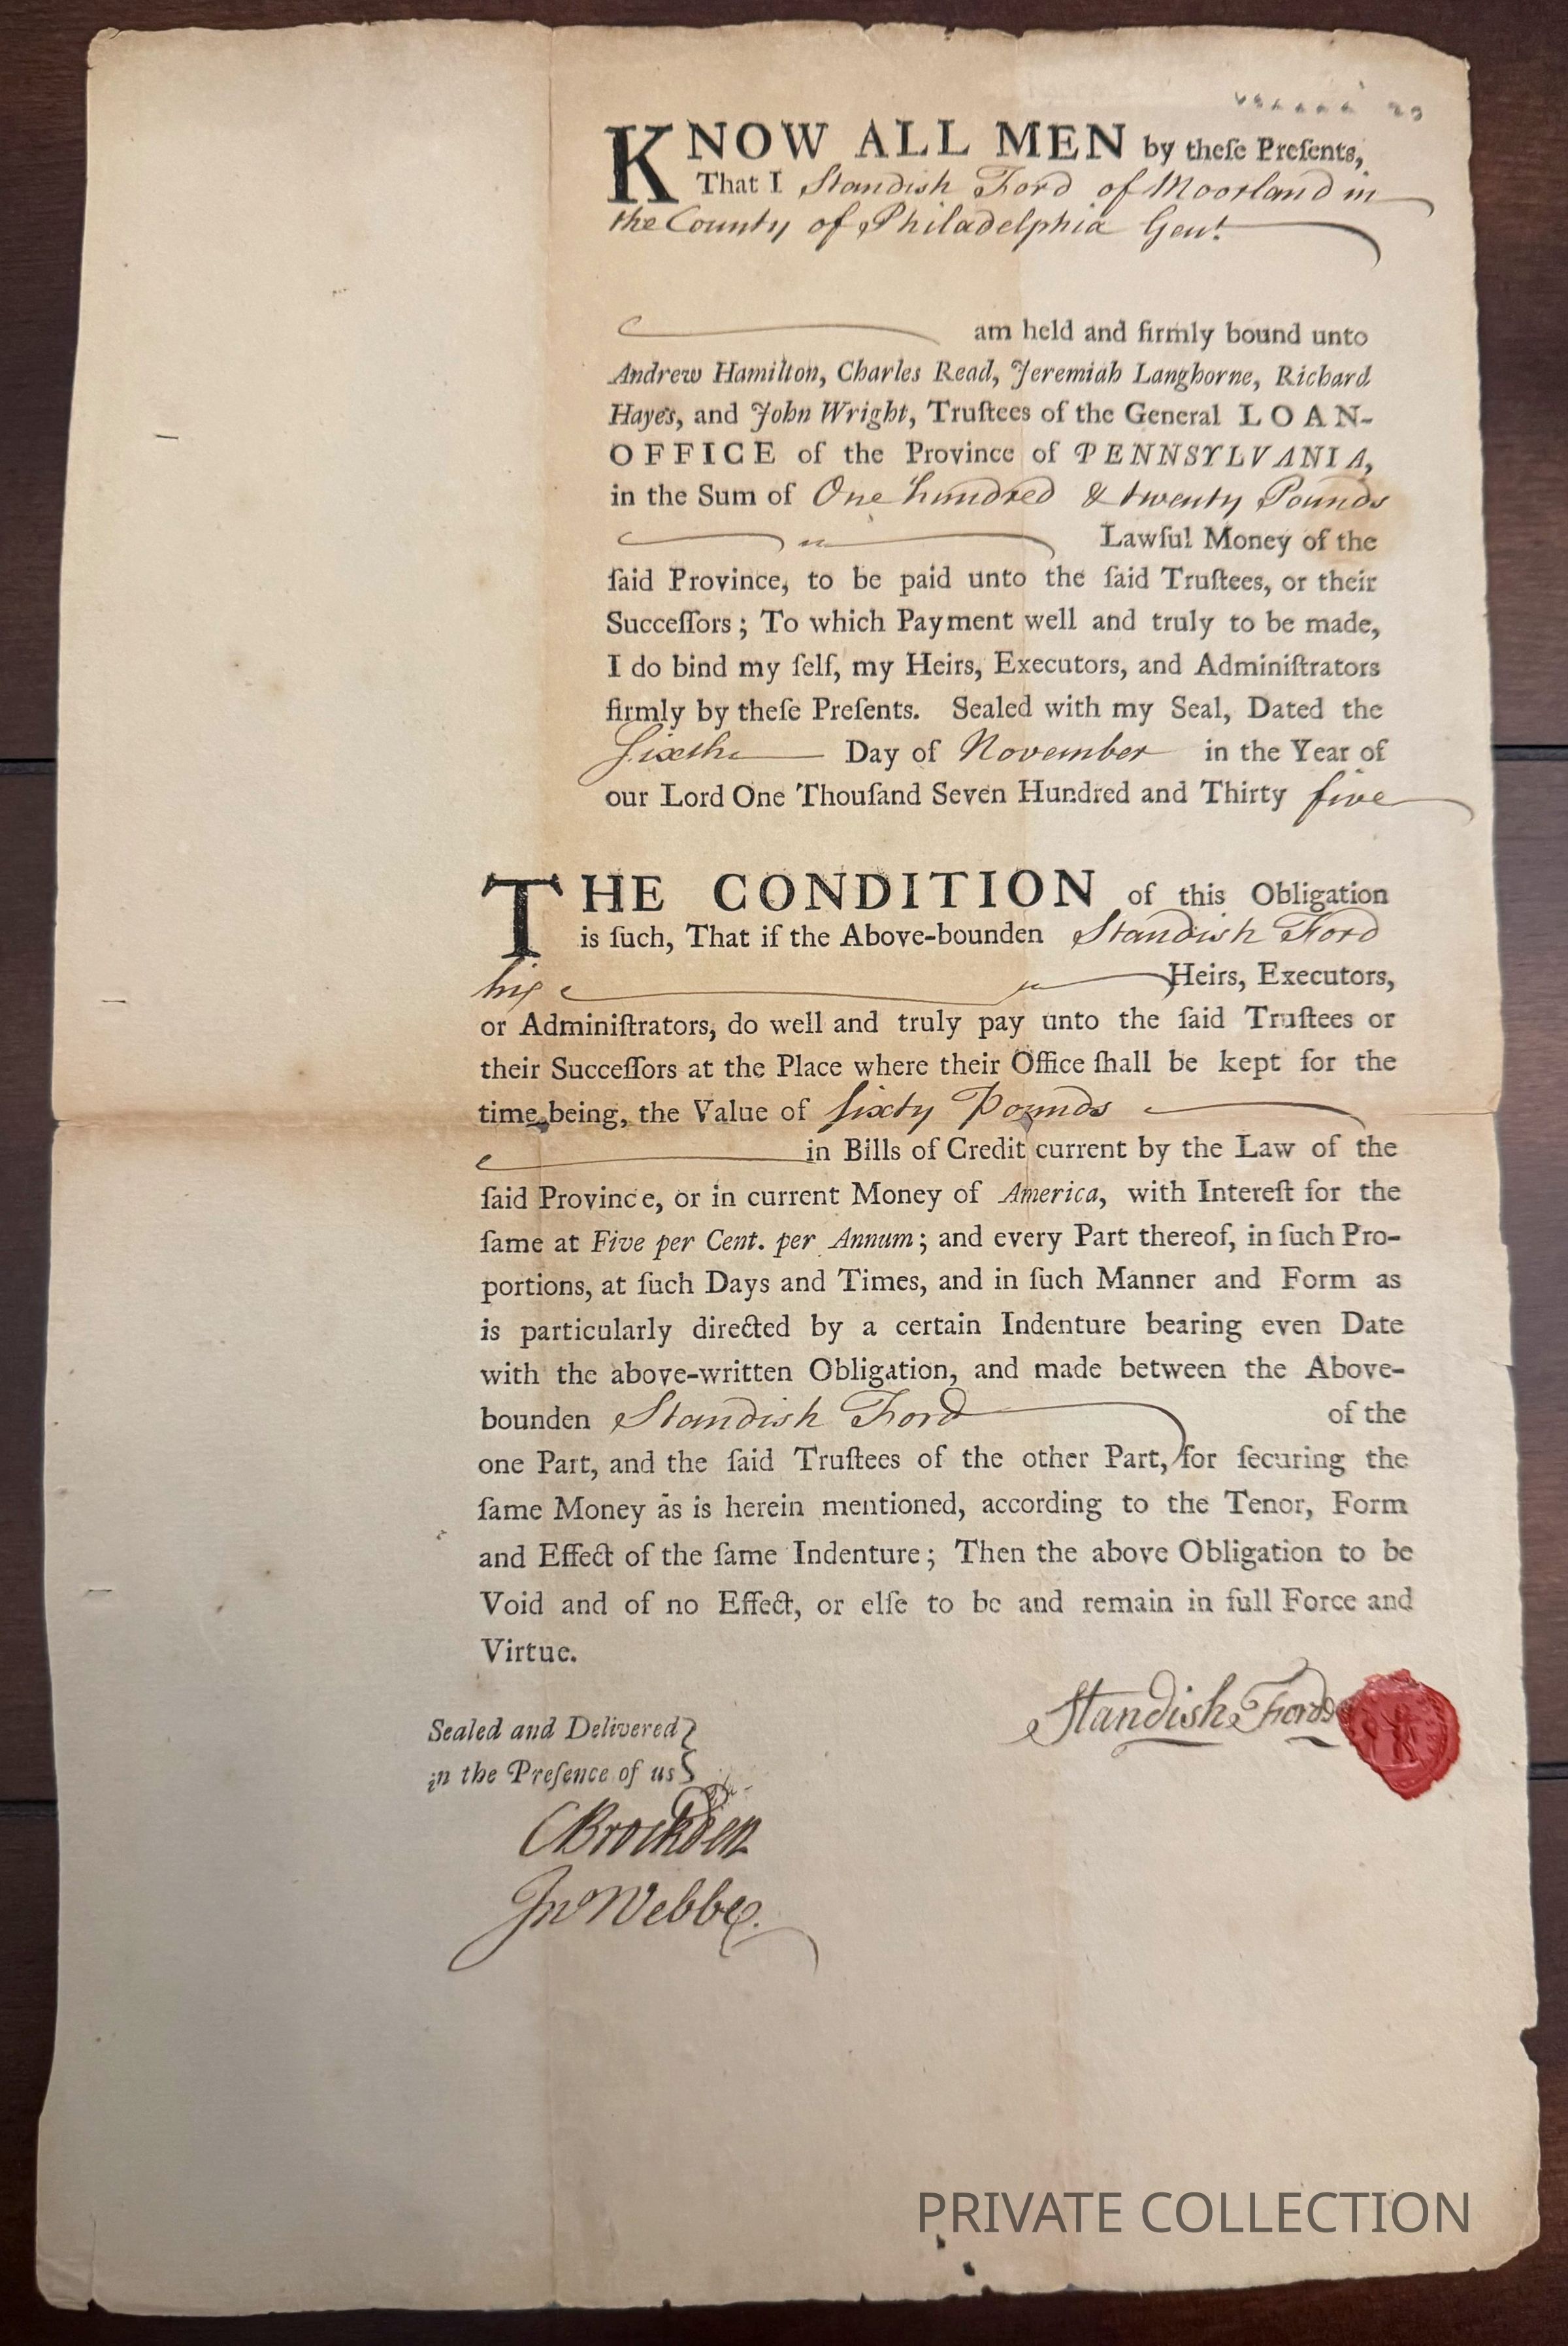 KNOW ALL MEN by theſe Preſents,
That I Standish Ford of Moorland in
the County of Philadelphia Gent.
am held and firmly bound unto
Andrew Hamilton, Charles Read, Jeremiah Langhorne, Richard
Hayes, and John Wright, Truſtees of the General LOAN-
OFFICE of the Province of PENNSYLVANIA,
in the Sum of One hundred & twenty Pounds
Lawful Money of the
ſaid Province, to be paid unto the ſaid Truſtees, or their
Succeſſors; To which Payment well and truly to be made,
I do bind my ſelf, my Heirs, Executors, and Adminiſtrators
firmly by theſe Preſents. Sealed with my Seal, Dated the
Sixth Day of November in the Year of
our Lord One Thouſand Seven Hundred and Thirty five
THE CONDITION of this Obligation
is ſuch, That if the Above-bounden Standish Ford
his Heirs, Executors,
or Adminiſtrators, do well and truly pay unto the ſaid Truſtees or
their Succeſſors at the Place where their Office ſhall be kept for the
time being, the Value of Sixty Pounds
in Bills of Credit current by the Law of the
ſaid Province, or in current Money of America, with Intereſt for the
ſame at Five per Cent. per Annum; and every Part thereof, in ſuch Pro-
portions, at ſuch Days and Times, and in ſuch Manner and Form as
is particularly directed by a certain Indenture bearing even Date
with the above-written Obligation, and made between the Above-
bounden Standish Ford of the
one Part, and the ſaid Truſtees of the other Part, for ſecuring the
ſame Money as is herein mentioned, according to the Tenor, Form
and Effect of the ſame Indenture; Then the above Obligation to be
Void and of no Effect, or elſe to be and remain in full Force and
Virtue.
Standish Ford
Sealed and Delivered
in the Preſence of us
C Brockden
Jno Webbe.
PRIVATE COLLECTION